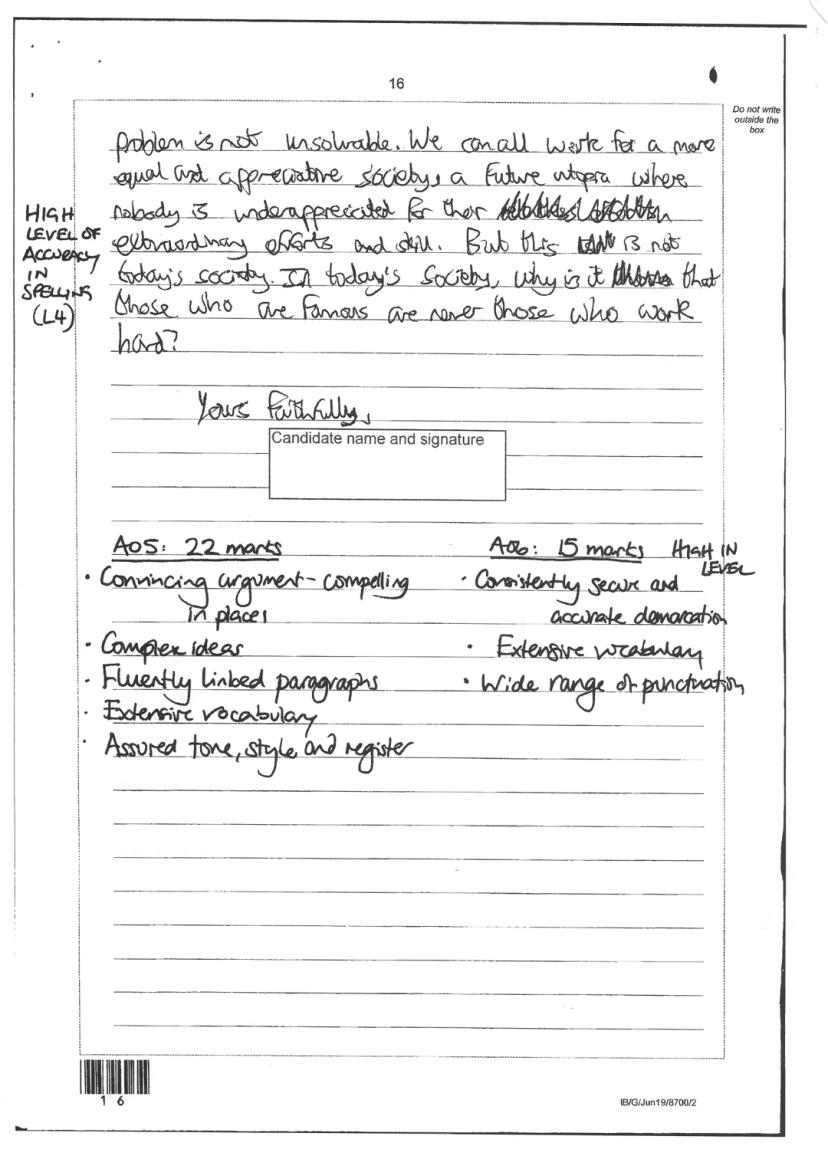 16
Do not write
outside the
box
problem is not unsolvable. We can all work for a more
equal and appreciative society, a future utopia where
nobody is underappreciated for their
extraordinary efforts and skill. But this is not
today's society. In today's society, why is it that
those who are famous are never those who work
hard?
HIGH
LEVEL OF
ACCURACY
IN
SPELLING
(L4)
Yours Faithfully,
Candidate name and signature
AO5: 22 marks
• Convincing argument - compelling
in places
• Complex ideas
• Fluently linked paragraphs
• Extensive vocabulary
• Assured tone, style and register
AO6: 15 marks HIGH IN
LEVEL
• Consistently secure and
accurate demarcation
• Extensive vocabulary
• Wide range of punctuation
1 6
IB/G/Jun19/8700/2